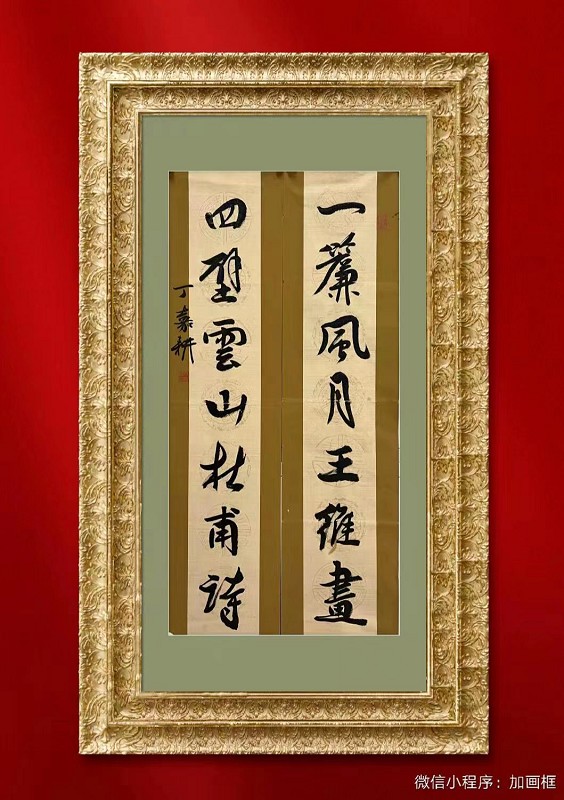 一簾風月王維畫
四壁雲山杜甫詩
丁嘉耕
微信小程序：加画框